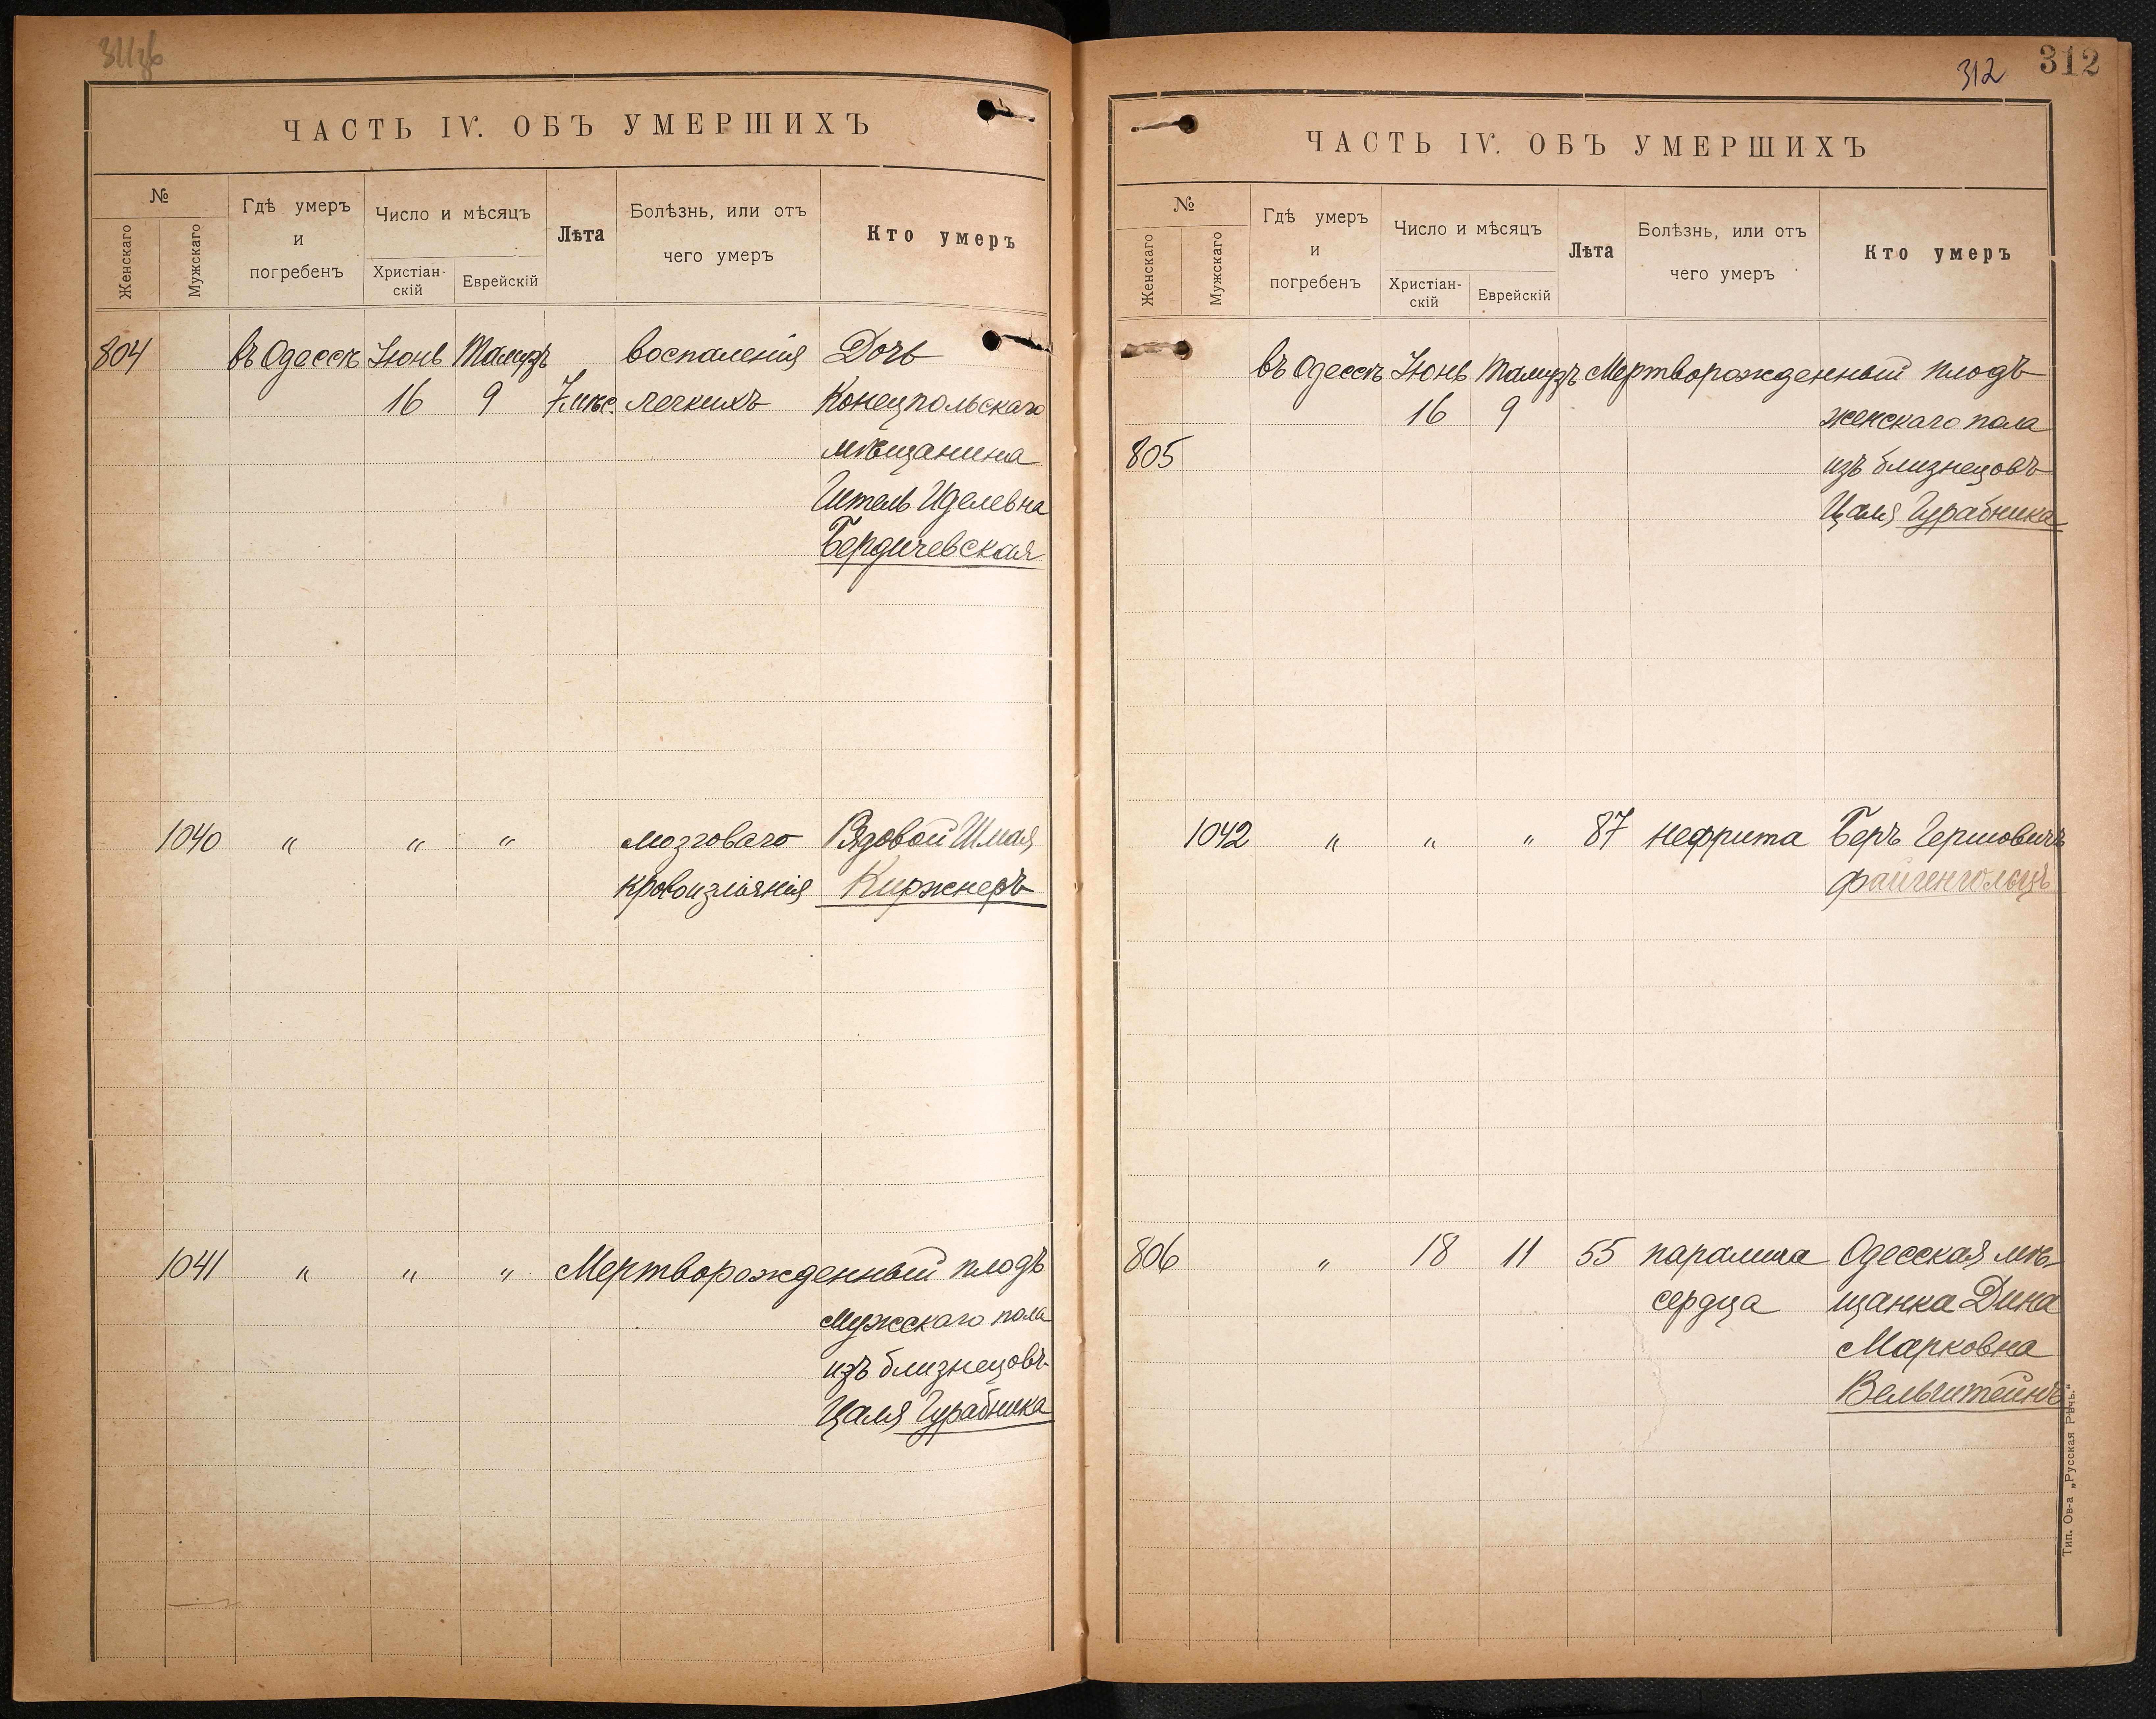 ЧАСТЬ IV. ОБЪ УМЕРШИХЪ
№
Женскаго
Мужскаго
Гдѣ умеръ
и
погребенъ
Число и мѣсяцъ
Христіан-
скій
Еврейскій
Лѣта
Болѣзнь, или отъ
чего умеръ
Кто умеръ
804 въ Одессѣ Іюнь Тамузъ воспаленія Дочь
16 9 7 мѣс. легкихъ Конецпольскаго
мѣщанина
Итель Иделевна
Бердичевская
1040 " " " мозговаго Рядовой Шмая
кровоизліянія Киржнеръ
1041 " " " Мертворожденный плодъ
мужскаго пола
изъ близнецовъ
Цаля Гурабника
312 312
ЧАСТЬ IV. ОБЪ УМЕРШИХЪ
№
Женскаго
Мужскаго
Гдѣ умеръ
и
погребенъ
Число и мѣсяцъ
Христіан-
скій
Еврейскій
Лѣта
Болѣзнь, или отъ
чего умеръ
Кто умеръ
въ Одессѣ Іюнь Тамузъ Мертворожденный плодъ
16 9 женскаго пола
805 изъ близнецовъ
Цаля Гурабника
1042 " " " 87 нефрита Беръ Гершовичъ
Файгенгольцъ
806 " 18 11 55 паралича Одесская мѣ-
сердца щанка Дина
Марковна
Вельштейнъ
Тип. Ов-а „Русская Рѣчь.“